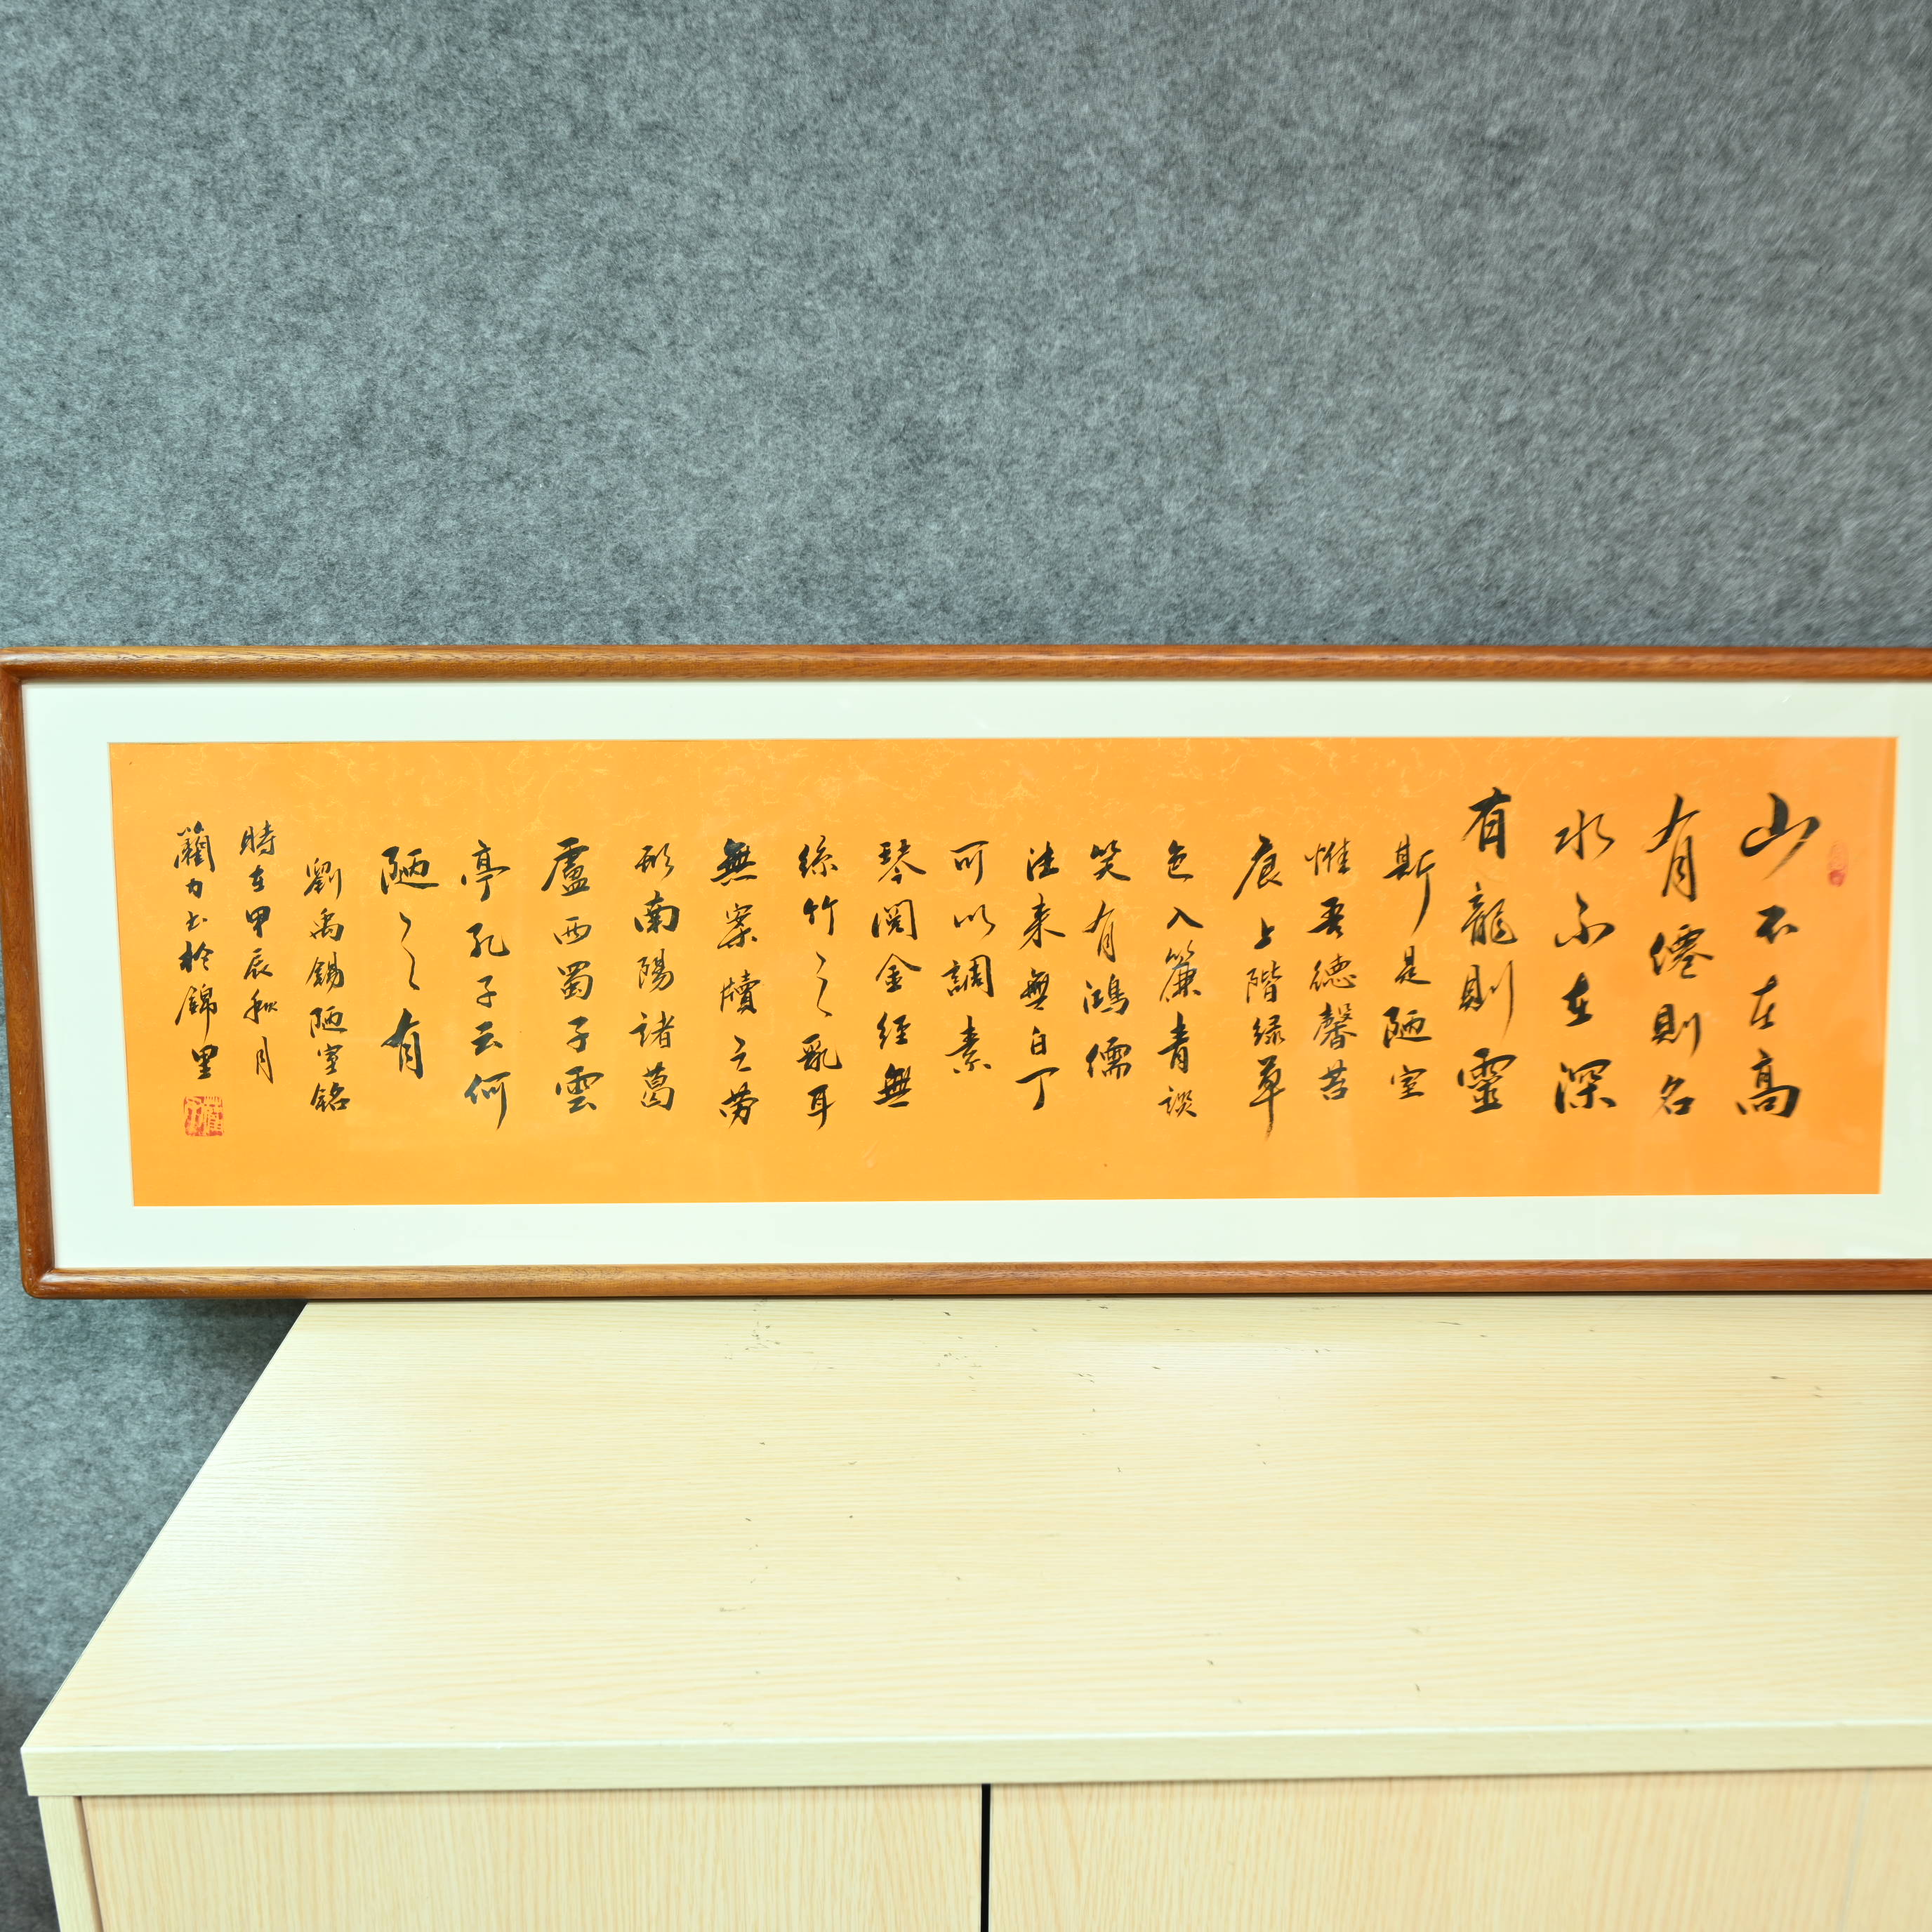 山不在高
有僊則名
水不在深
有龍則靈
斯是陋室
惟吾德馨苔
痕上階緑草
色入簾青談
笑有鴻儒
往来無白丁
可以調素
琴閲金經無
絲竹之亂耳
無案牘之勞
形南陽諸葛
廬西蜀子雲
亭孔子云何
陋之有
劉禹錫陋室銘
時在甲辰秋月
藺力书於錦里